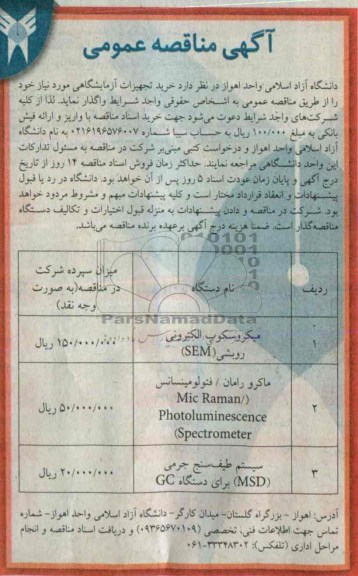 آگهی مناقصه عمومی
دانشگاه آزاد اسلامی واحد اهواز در نظر دارد خرید تجهیزات آزمایشگاهی مورد نیاز خود
را از طریق مناقصه عمومی به اشخاص حقوقی واجد شرایط واگذار نماید. لذا از کلیه
شرکت‌های واجد شرایط دعوت می‌شود جهت خرید اسناد مناقصه با واریز و ارائه فیش
بانکی به مبلغ ۱۰۰/۰۰۰ ریال به حساب سیبا شماره ۰۲۱۶۱۹۶۵۷۶۰۰۷ به نام دانشگاه
آزاد اسلامی واحد اهواز و درخواست کتبی مبنی‌بر شرکت در مناقصه به مسئول تدارکات
این واحد دانشگاهی مراجعه نمایند. حداکثر زمان فروش اسناد مناقصه ۱۴ روز از تاریخ
درج آگهی و پایان زمان عودت اسناد ۵ روز پس از آن خواهد بود. دانشگاه در رد یا قبول
پیشنهادات و انعقاد قرارداد مختار است و کلیه پیشنهادات مبهم و مشروط مردود خواهد
بود. شرکت در مناقصه و دادن پیشنهادات به منزله قبول اختیارات و تکالیف دستگاه
مناقصه‌گذار است. ضمنا هزینه درج آگهی برعهده برنده مناقصه می‌باشد.
ردیف نام دستگاه میزان سپرده شرکت
در مناقصه(به صورت
وجه نقد)
۱ میکروسکوپ الکترونی
روبشی(SEM) ۱۵۰/۰۰۰/۰۰۰ ریال
۲ ماکرو رامان / فتولومینسانس
(Mic Raman/
Photoluminescence
Spectrometer) ۵۰/۰۰۰/۰۰۰ ریال
۳ سیستم طیف‌سنج جرمی
(MSD) برای دستگاه GC ۲۰/۰۰۰/۰۰۰ ریال
ParsNamadData
آدرس: اهواز - بزرگراه گلستان- میدان کارگر- دانشگاه آزاد اسلامی واحد اهواز- شماره
تماس جهت اطلاعات فنی، تخصصی (۰۹۳۶۵۶۷۰۱۰۹) و دریافت اسناد مناقصه و انجام
مراحل اداری (تلفکس): ۳۳۳۴۸۳۰۲-۰۶۱